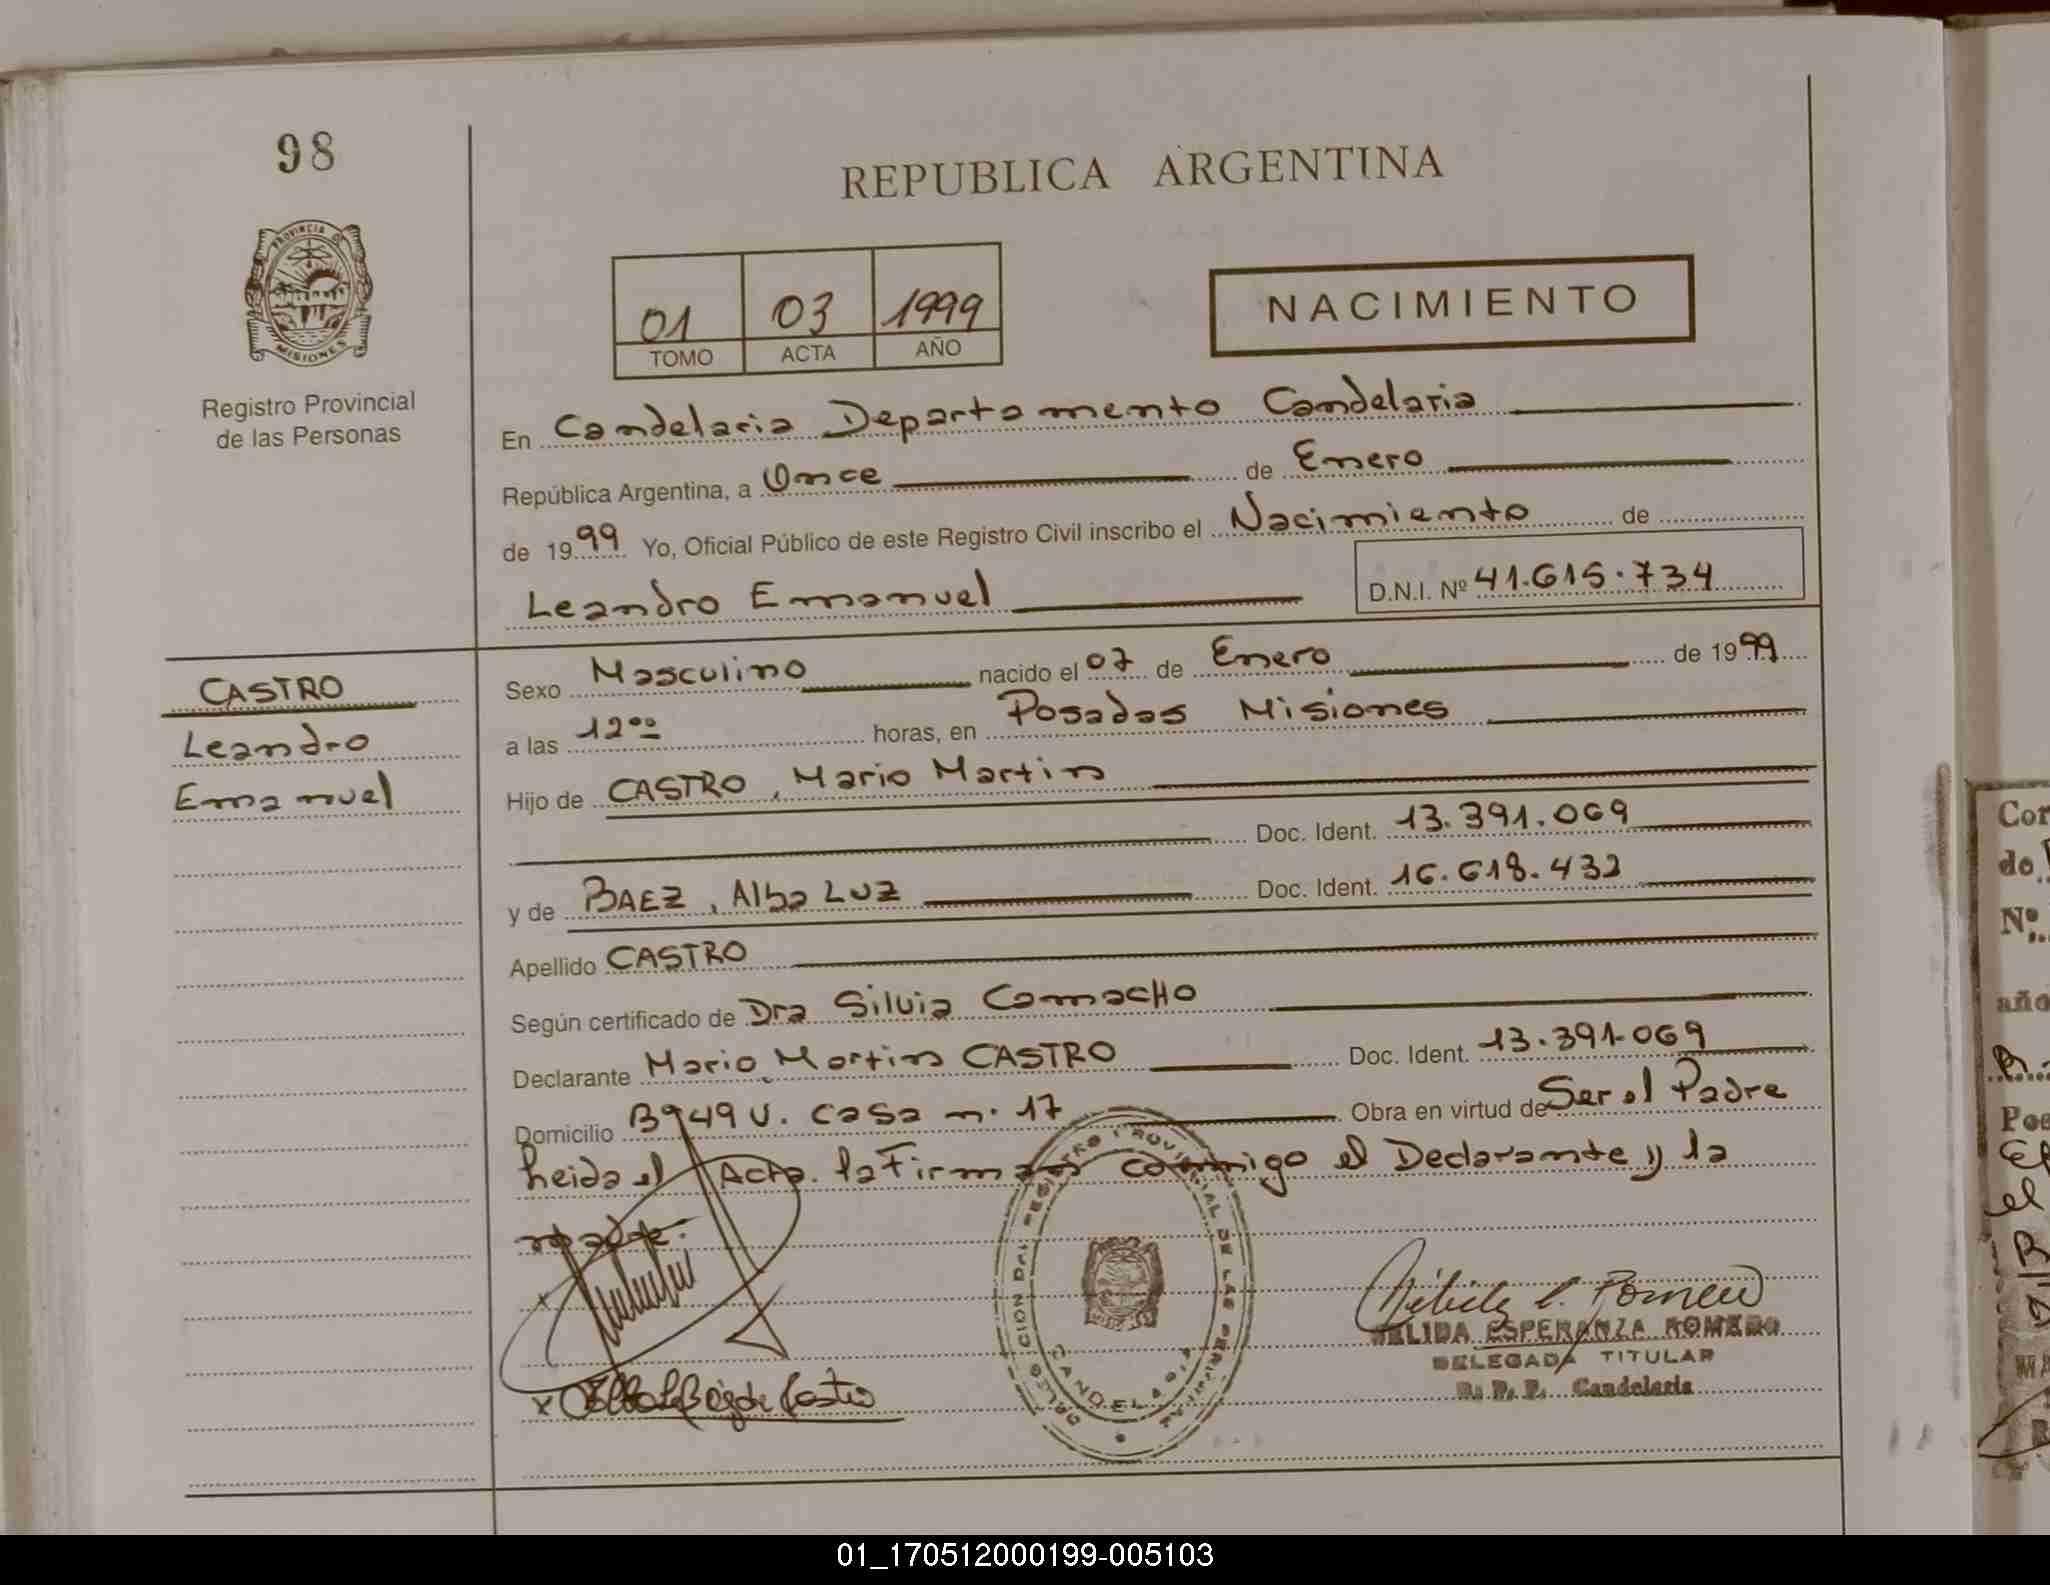 98
REPUBLICA ARGENTINA
PROVINCIA DE
MISIONES
Registro Provincial
de las Personas
01 03 1999
TOMO ACTA AÑO
NACIMIENTO
En Candelaria Departamento Candelaria
República Argentina, a Once de Enero
de 1999 Yo, Oficial Público de este Registro Civil inscribo el Nacimiento de
Leandro Emanuel D.N.I. Nº 41.615.734
CASTRO
Leandro
Emanuel
Sexo Masculino nacido el 07 de Enero de 1999
a las 12 00 horas, en Posadas Misiones
Hijo de CASTRO, Mario Martin
Doc. Ident. 13.391.069
y de BAEZ, Alba LUZ Doc. Ident. 16.618.432
Apellido CASTRO
Según certificado de Dra Silvia CamacHo
Declarante Mario Martin CASTRO Doc. Ident. 13.391.069
Domicilio Bº 49 V. casa n. 17 Obra en virtud de Ser el Padre
heida el Acta. la Firman conmigo el Declarante y la
madre.
REGISTRO PROVINCIAL DE LAS PERSONAS
CANDELARIA
NELIDA ESPERANZA ROMERO
DELEGADA TITULAR
R. P. P. Candelaria
Cor
de
Nº
año
Pos
el
01_170512000199-005103